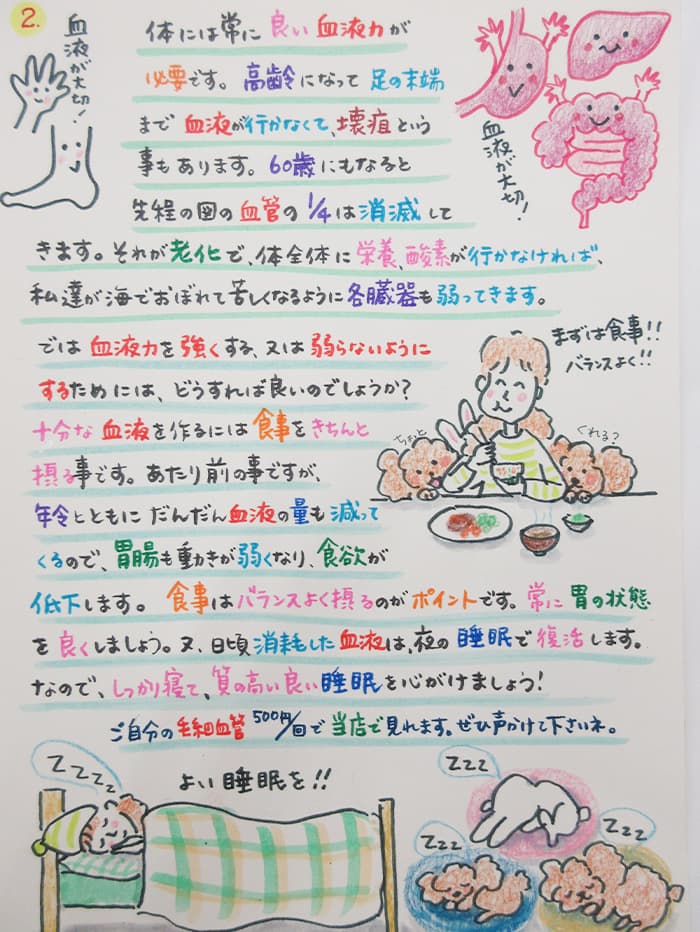 2.
血液が大切!
体には常に良い血液力が
必要です。高齢になって足の末端
まで血液が行かなくて、壊疽という
事もあります。60歳にもなると
先程の図の血管の1/4は消滅して
きます。それが老化で、体全体に栄養、酸素が行かなければ、
私達が海でおぼれて苦しくなるように各臓器も弱ってきます。
血液が大切!
では血液力を強くする、又は弱らないように
するためには、どうすれば良いのでしょうか?
十分な血液を作るには食事をきちんと
摂る事です。あたり前の事ですが、
年令とともにだんだん血液の量も減って
くるので、胃腸も動きが弱くなり、食欲が
低下します。食事はバランスよく摂るのがポイントです。常に胃の状態
を良くしましょう。又、日頃消耗した血液は、夜の睡眠で復活します。
なので、しっかり寝て、質の高い良い睡眠を心がけましょう!
まずは食事!!
バランスよく!!
ちょっと
くれる?
ご自分の毛細血管500円/回で当店で見れます。ぜひ声かけて下さいネ。
ZZZZ
よい睡眠を!!
ZZZ
ZZZ
ZZZ